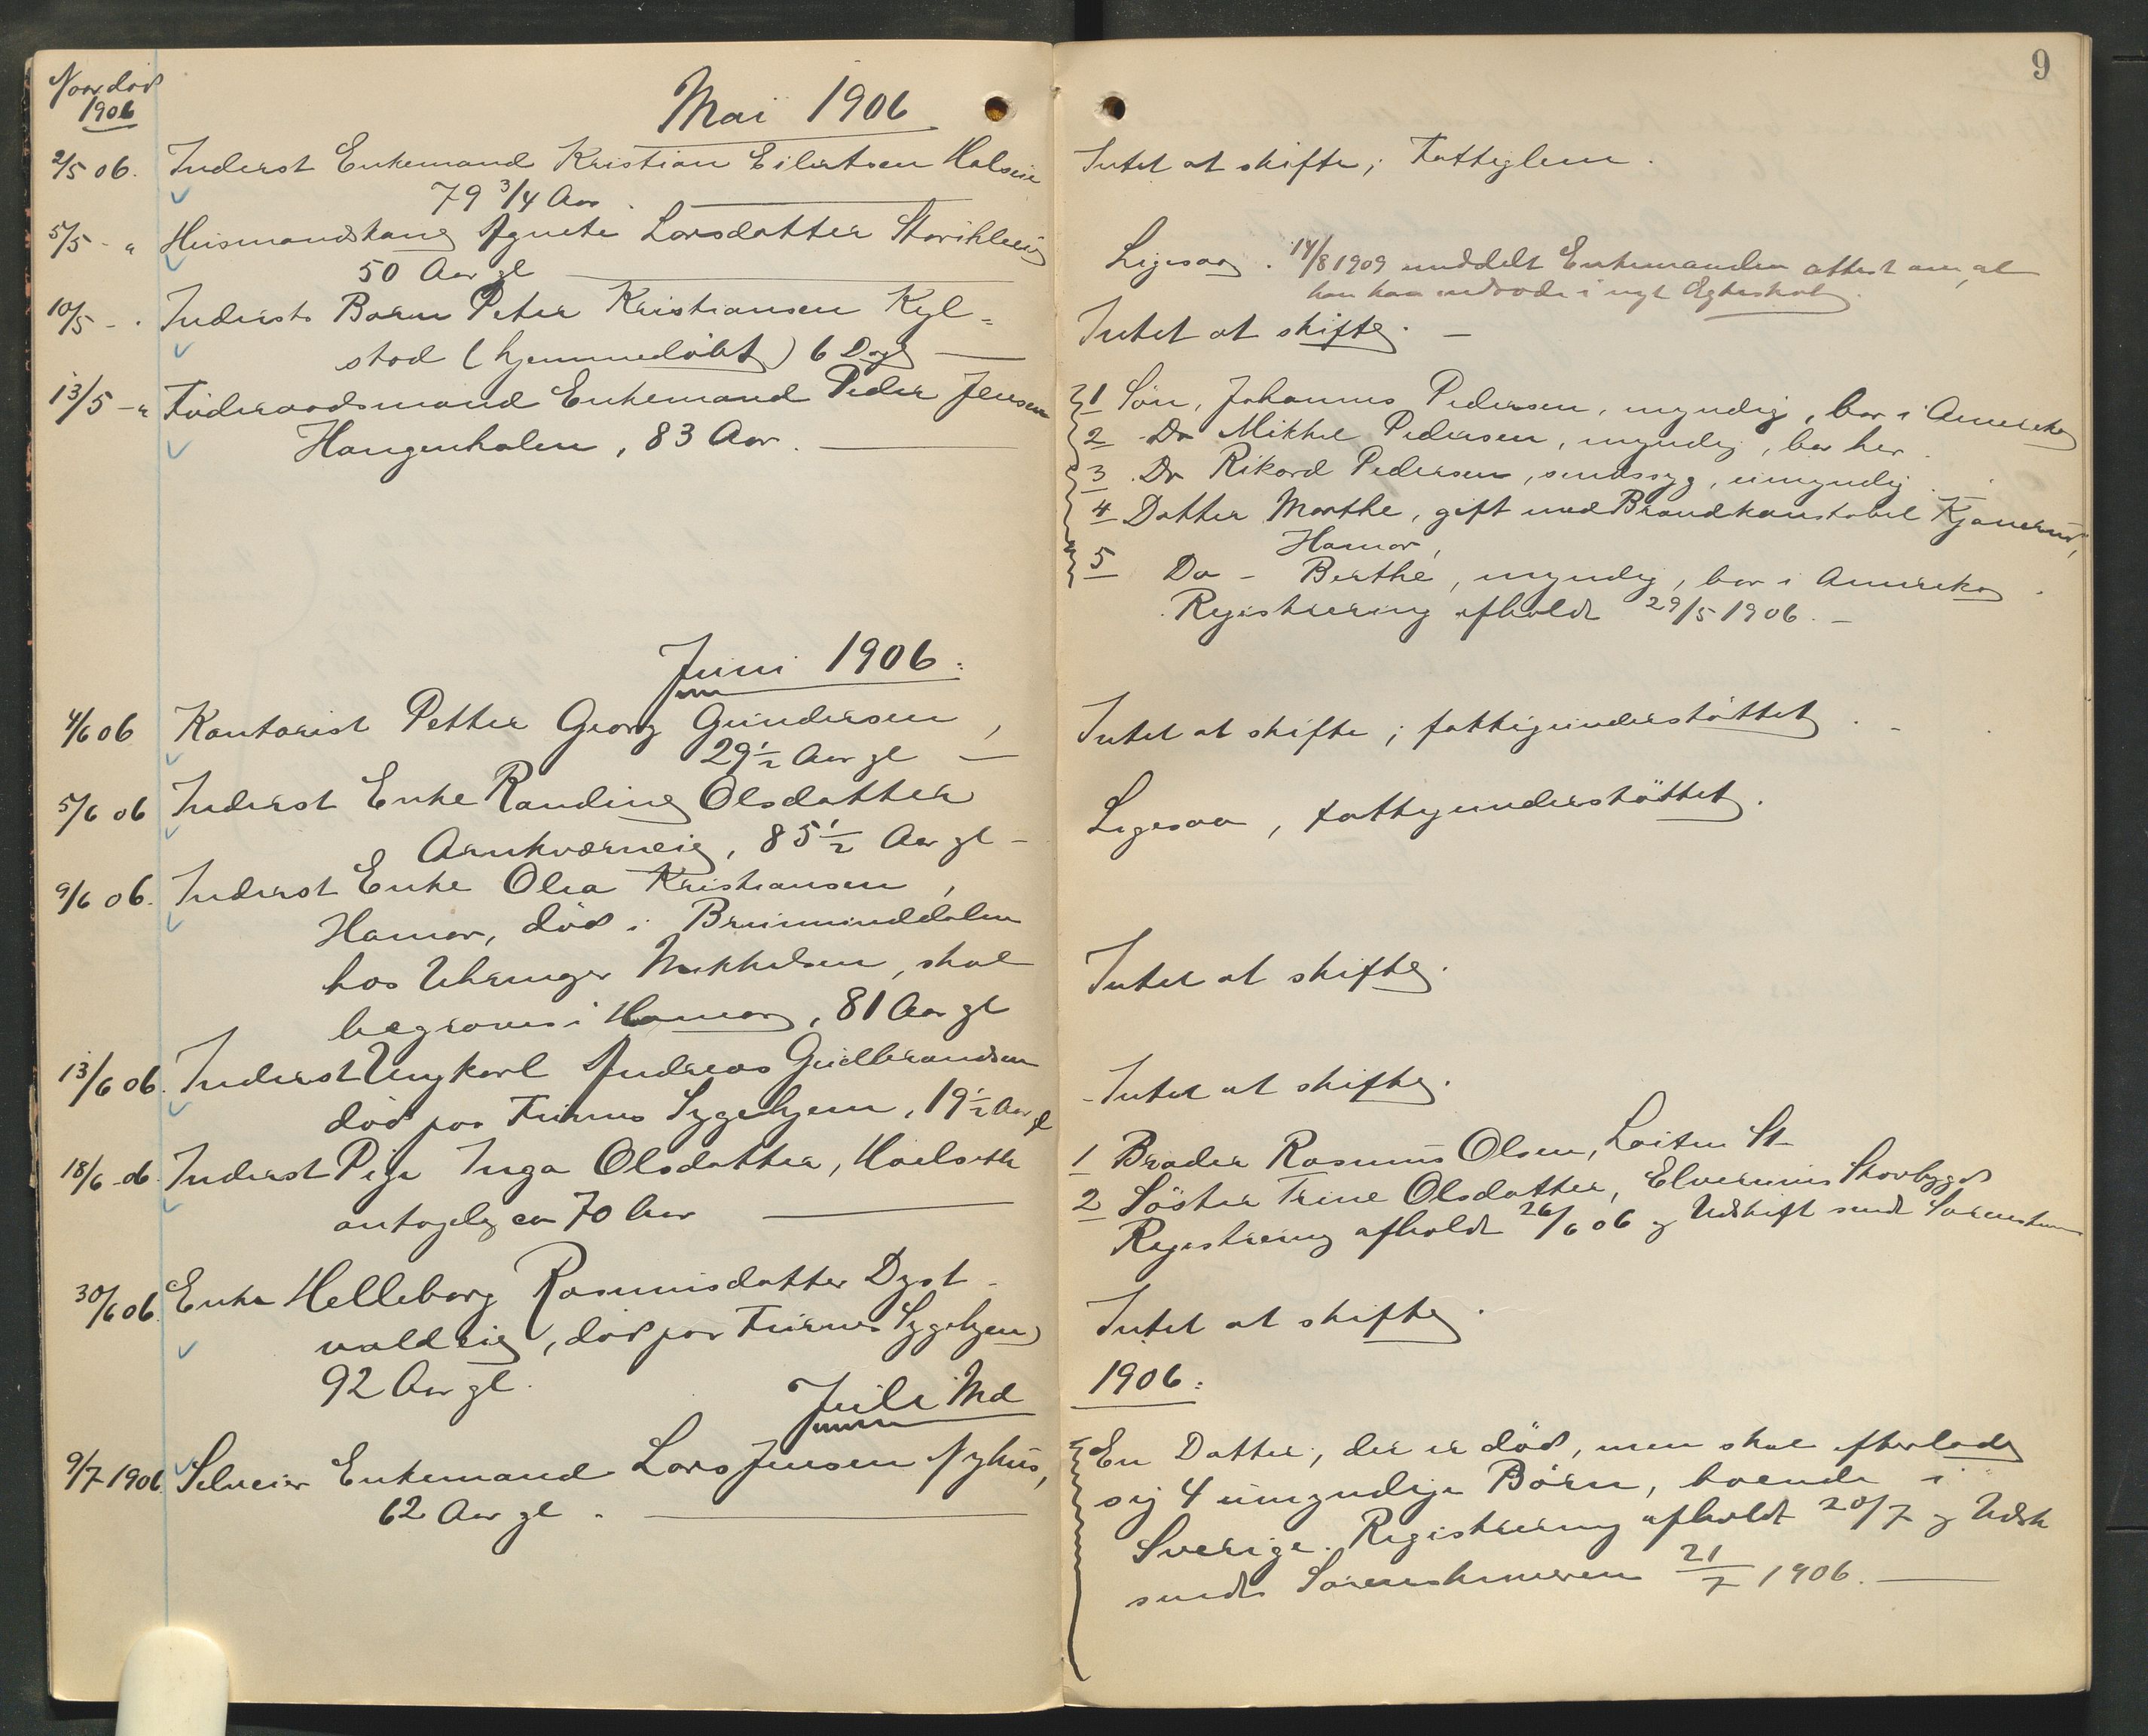 Naar død
1906
Mai 1906
2/5 06. Inderst Enkemand Kristian Eilertsen Halseie
79 3/4 Aar.
5/5 - " Husmandskone Agnete Larsdatter
50 Aar gl
10/5 - " Indersts Barn Peter Kristiansen Kyl=
stad (hjemmedøbt) 6 Dage
13/5 - " Føderaadsmand Enkemand Peder Jensen
Haugenhalen, 83 Aar.
Juni 1906.
4/6 06 Kontorist Petter Georg Gundersen,
29 1/2 Aar gl
5/6 06 Inderst Enke Randine Olsdatter
Arnkværneie, 85 1/2 Aar gl -
9/6 06. Inderst Enke Olea Kristiansen,
Hamar, død i Brumunddalen
hos Uhrmager Mikkelsen, skal
begraves i Hamar, 81 Aar gl
13/6 06. Inderst Ungkarl Andreas Gudbrandsen
død paa Furnes Sygehjem, 19 1/2 Aar gl
18/6 - 06. Inderst Pige Inga Olsdatter,
antagelig ca 70 Aar
30/6 06. Enke Helleborg Rasmusdatter Dyst-
valdeie, død paa Furnes Sygehjem
92 Aar gl.
Juli Md
9/7 1906. Selveier Enkemand Lars Jensen Nyhus,
62 Aar gl.
9
Intet at skifte; Fattiglem.
Ligesaa. 14/8 1909 meddelt Enkemanden attest om, at
han kan indtræde i nyt Ægteskab.
Intet at skifte. -
1 Søn, Johannes Pedersen, myndig, bor i Amerika
2 Do Mikkel Pedersen, myndig, bor her.
3 Do Rikard Pedersen, sindssyg, umyndig.
4 Datter Marthe, gift med Brandkonstabel
Hamar,
5 Do - Berthe, myndig, bor i Amerika.
Registrering afholdt 29/5 1906. -
Intet at skifte; fattigunderstøttet. -
Ligesaa, fattigunderstøttet.
Intet at skifte.
- Intet at skifte.
1 Broder Rasmus Olsen, Løiten St
2 Søster Trine Olsdatter, Elverums Skovbygd
Registrering afholdt 26/6 06 og Udskift sendt
Intet at skifte.
1906.
En Datter, der er død, men skal efterlade
sig 4 umyndige Børn, boende i
Sverige. Registrering afholdt 20/7 og Udsk
sendt Sorenskriveren 21/7 1906.